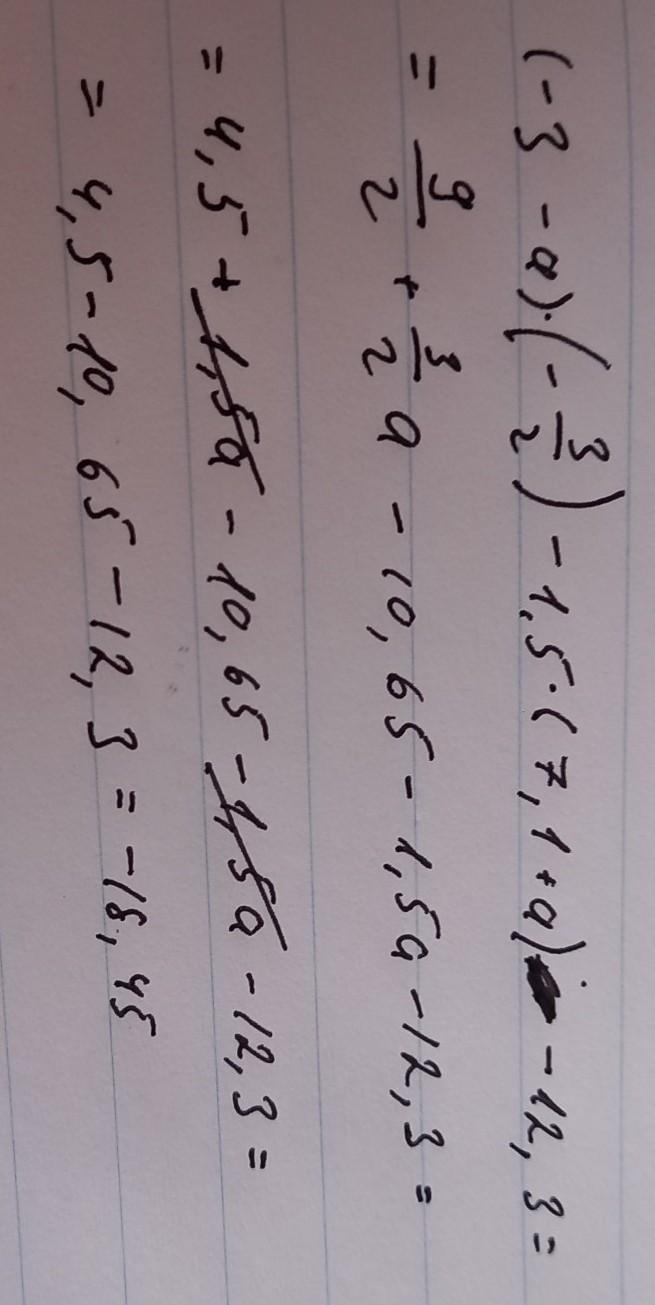 (-3 - a)·(-3/2) - 1,5·(7,1+a) - 12,3 =
= 9/2 + 3/2 a - 10,65 - 1,5a - 12,3 =
= 4,5 + 1,5a - 10,65 - 1,5a - 12,3 =
= 4,5 - 10,65 - 12,3 = -18,45